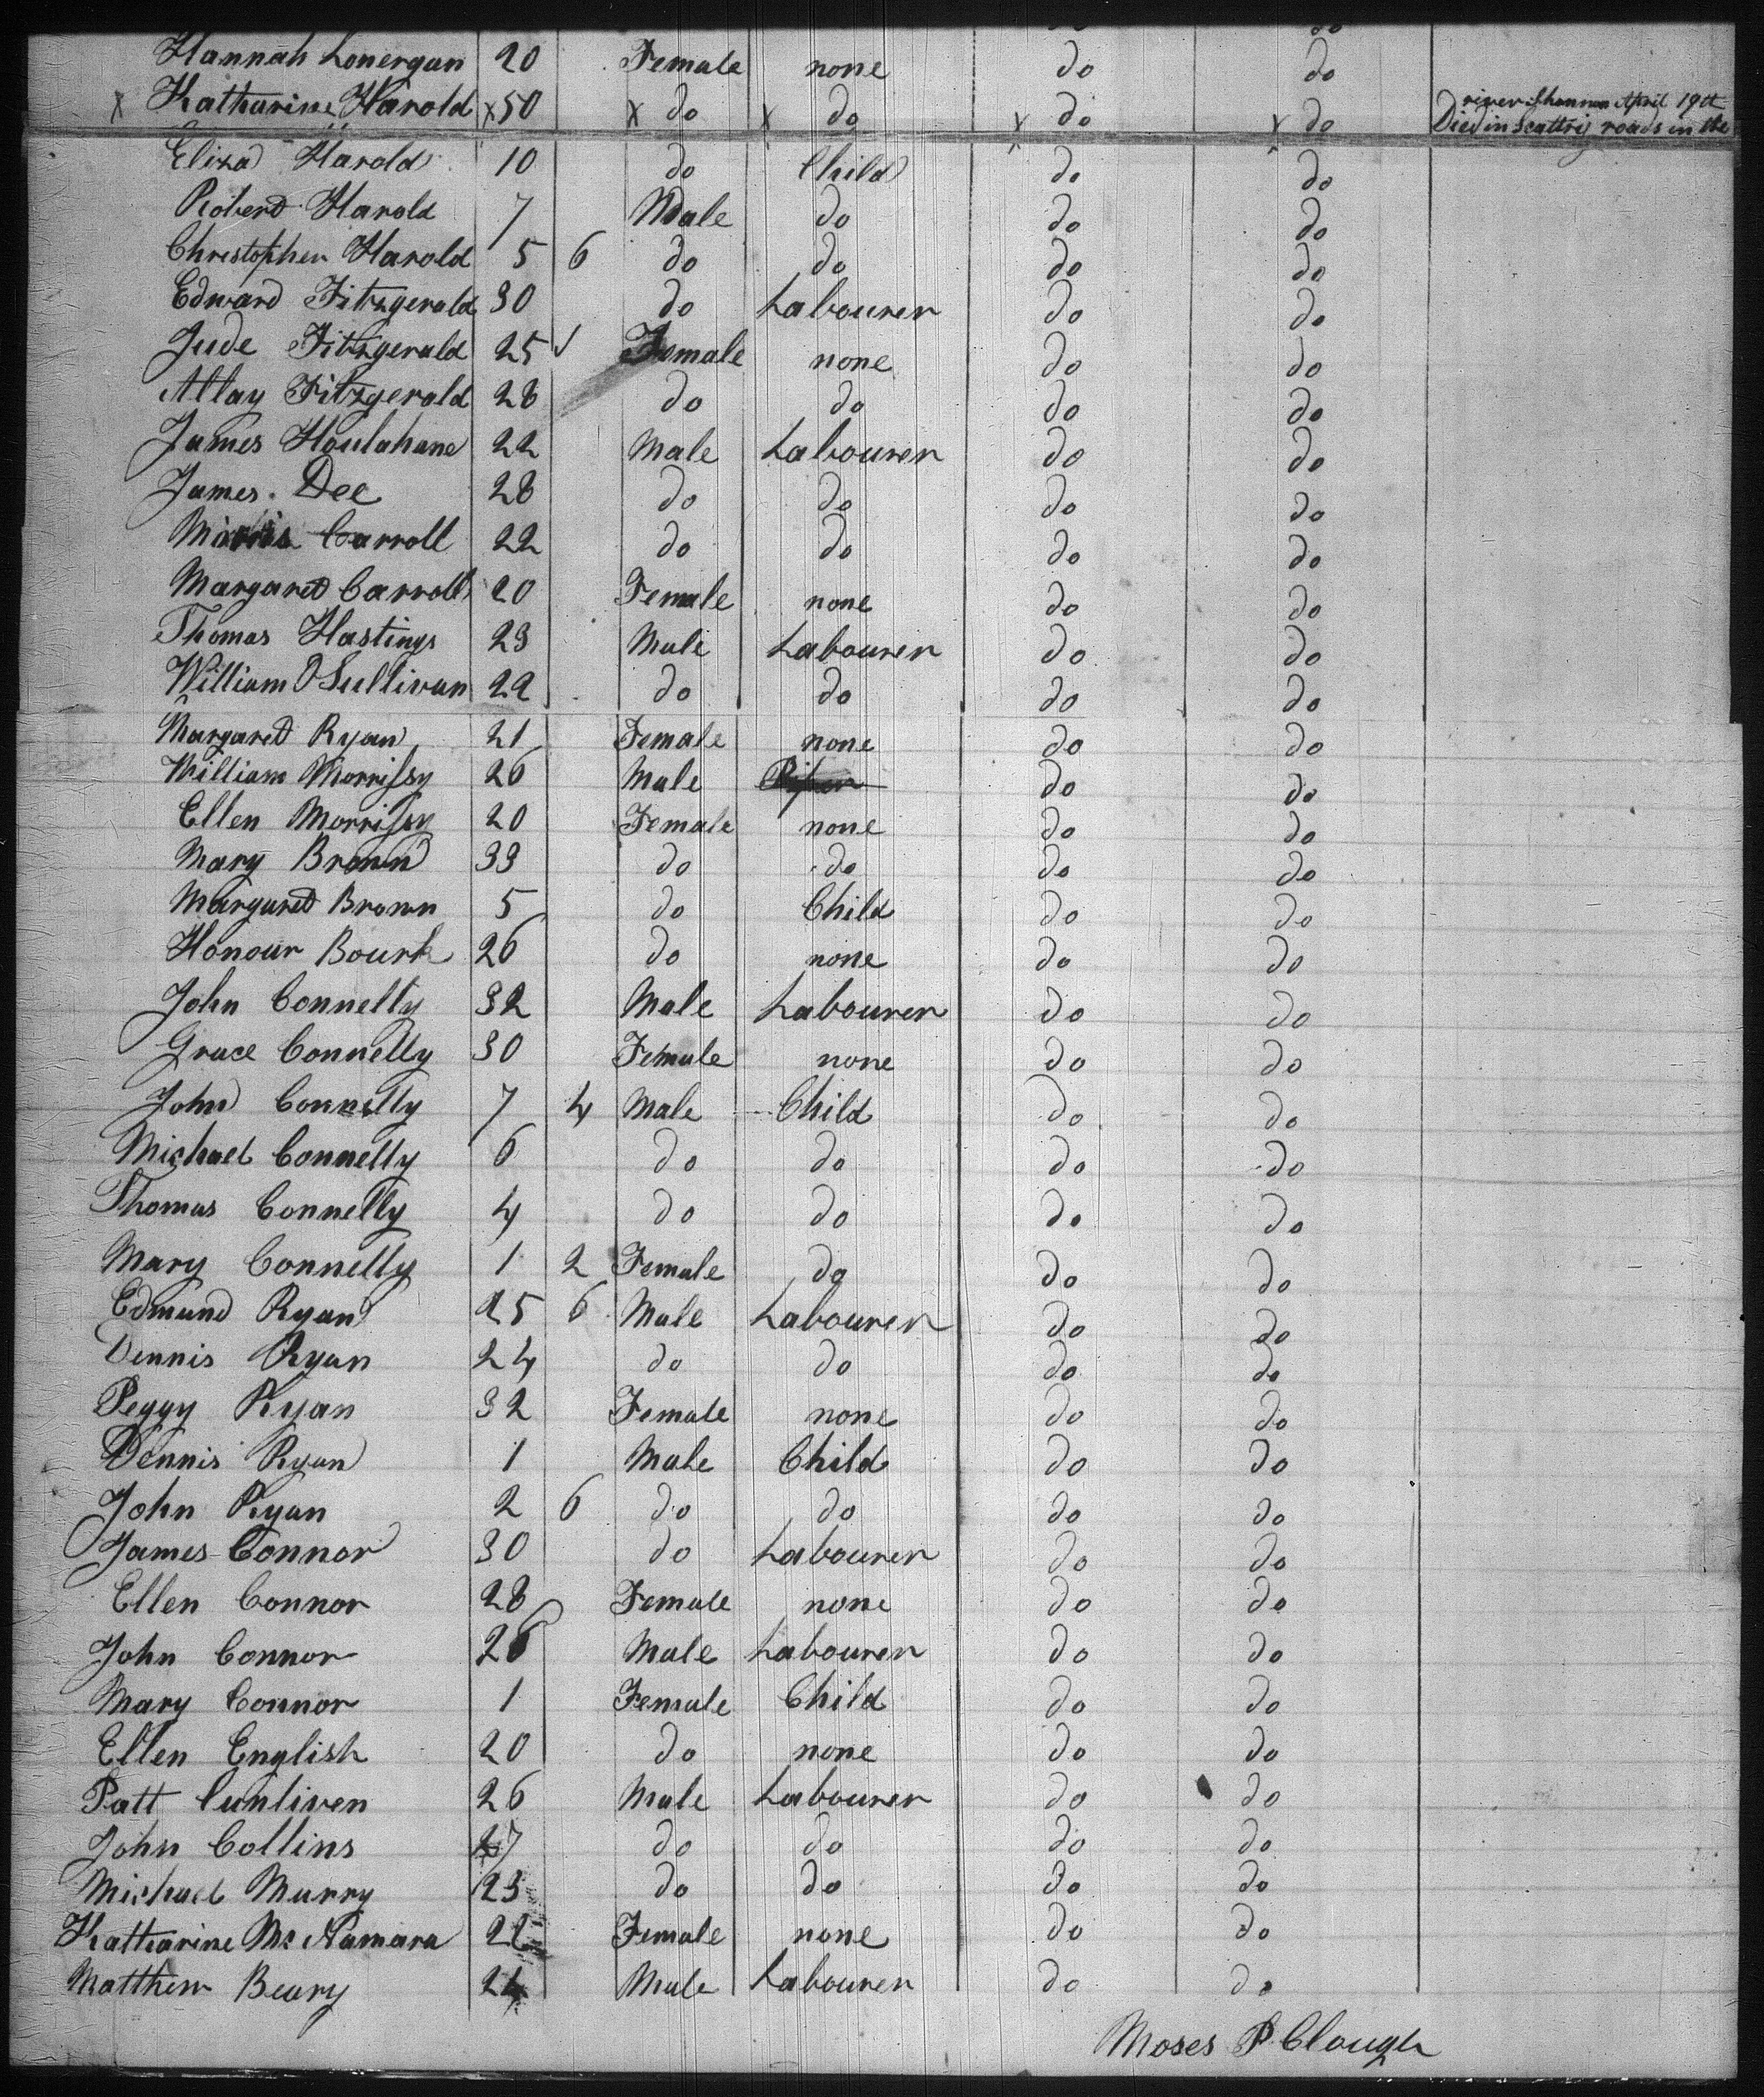 do
Hannah Lonergan 20 Female none do do
x Katharine Harold x 50 x do x do x do x do river Shannon April 19th
Died in Scattri roads in the
Eliza Harold 10 do Child do do
Robert Harold 7 Male do do do
Christopher Harold 5 6 do do do do
Edward Fitzgerald 30 do Labourer do do
Jude Fitzgerald 25 Female none do do
Fitzgerald 28 do do do do
James Houlahane 22 Male Labourer do do
James Dee 28 do do do do
Carroll 22 do do do do
Margaret Carroll 20 Female none do do
Thomas Hastings 23 Male Labourer do do
William OSullivan 22 do do do do
Margaret Ryan 21 Female none do do
William Morrissy 26 Male do do
Ellen Morrissy 20 Female none do do
Mary Brown 33 do do do do
Margaret Brown 5 do Child do do
Honour Bourk 26 do none do do
John Connelly 32 Male Labourer do do
Grace Connelly 30 Female none do do
John Connelly 7 4 Male Child do do
Michael Connelly 6 do do do do
Thomas Connelly 4 do do do do
Mary Connelly 1 2 Female do do do
Edmund Ryan 25 6 Male Labourer do do
Dennis Ryan 24 do do do do
Peggy Ryan 32 Female none do do
Dennis Ryan 1 Male Child do do
John Ryan 2 6 do do do do
James Connor 30 do Labourer do do
Ellen Connor 28 Female none do do
John Connor 26 Male Labourer do do
Mary Connor 1 Female Child do do
Ellen English 20 do none do do
Patt Cunliven 26 Male Labourer do do
John Collins 27 do do do do
Michael Murry 23 do do do do
Katharine Mc Namara Female none do do
Matthew Beary 24 Male Labourer do do
Moses P Clough